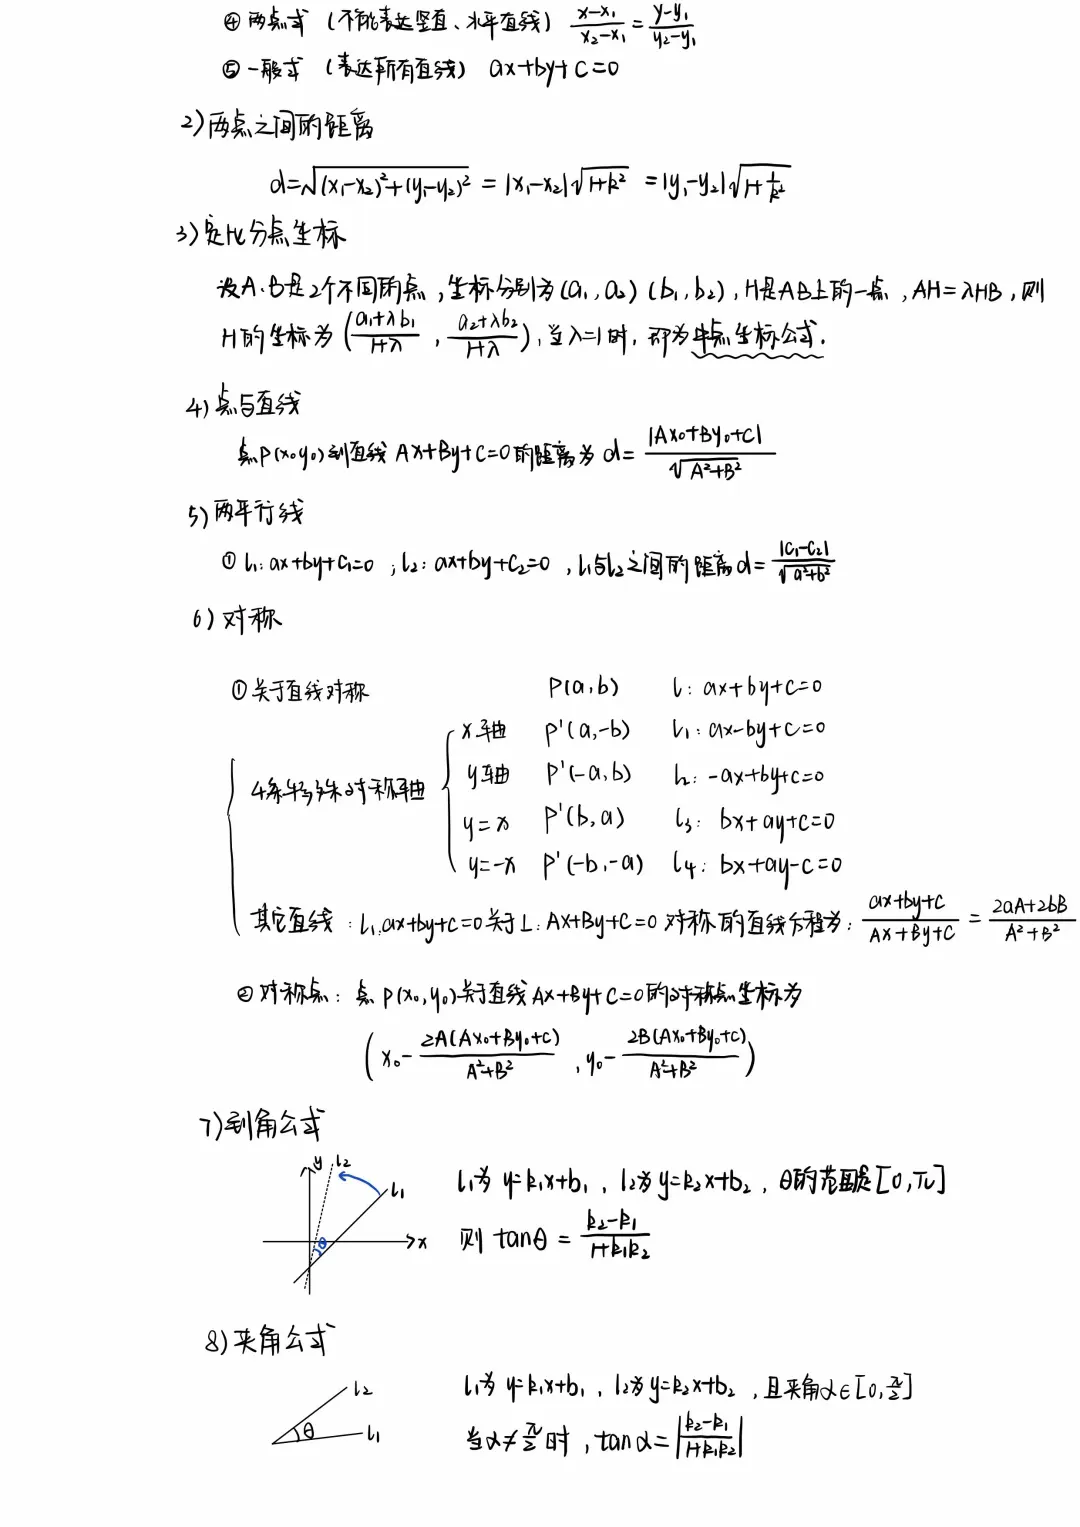 ④ 两点式 (不能表达竖直、水平直线) (x-x₁)/(x₂-x₁) = (y-y₁)/(y₂-y₁)
⑤ 一般式 (表达所有直线) ax+by+c=0
2) 两点之间的距离
d=√((x₁-x₂)²+(y₁-y₂)²) = |x₁-x₂|√(1+k²) = |y₁-y₂|√(1+1/k²)
3) 定比分点坐标
设A、B是2个不同的点,坐标分别为(a₁,a₂)(b₁,b₂),H是AB上的一点,AH=λHB,则
H的坐标为((a₁+λb₁)/(1+λ), (a₂+λb₂)/(1+λ)),当λ=1时,即为中点坐标公式.
4) 点与直线
点P(x₀y₀)到直线Ax+By+C=0的距离为d= |Ax₀+By₀+C|/√(A²+B²)
5) 两平行线
① l₁: ax+by+c₁=0 ; l₂: ax+by+c₂=0 , l₁与l₂之间的距离d= |c₁-c₂|/√(a²+b²)
6) 对称
① 关于直线对称 P(a,b) l: ax+by+c=0
x轴 P'(a,-b) l₁: ax-by+c=0
y轴 P'(-a,b) l₂: -ax+by+c=0
4条特殊对称轴
y=x P'(b,a) l₃: bx+ay+c=0
y=-x P'(-b,-a) l₄: bx+ay-c=0
其它直线: l₁:ax+by+c=0关于L: Ax+By+C=0对称的直线方程为: (ax+by+c)/(Ax+By+C) = (2aA+2bB)/(A²+B²)
② 对称点: 点P(x₀,y₀)关于直线Ax+By+C=0的对称点坐标为
(x₀- 2A(Ax₀+By₀+C)/(A²+B²), y₀- 2B(Ax₀+By₀+C)/(A²+B²))
7) 到角公式
y l₂ l₁ θ x
l₁为 y=k₁x+b₁, l₂为y=k₂x+b₂, θ的范围是[0,π]
则 tanθ = (k₂-k₁)/(1+k₁k₂)
8) 夹角公式
l₂ θ l₁
l₁为 y=k₁x+b₁, l₂为y=k₂x+b₂, 且夹角α∈[0,π/2]
当α≠π/2时, tanα=|(k₂-k₁)/(1+k₁k₂)|